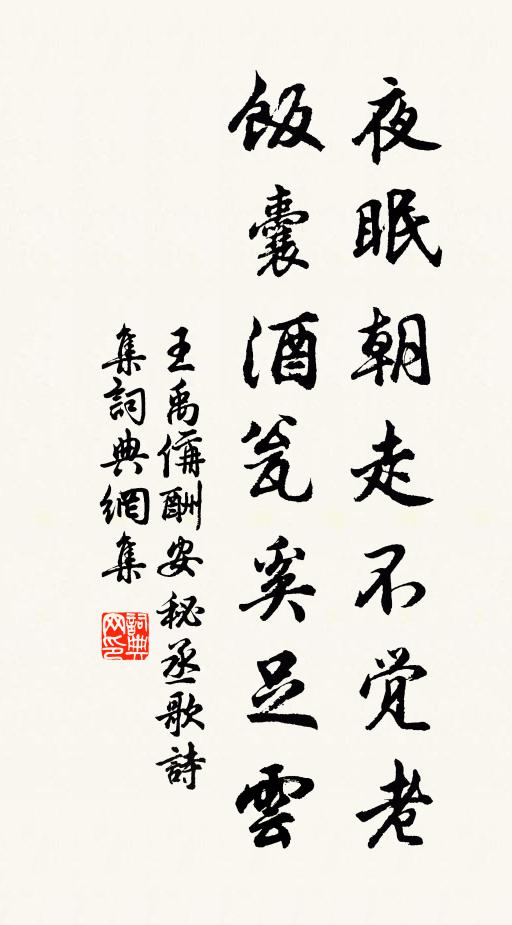 夜眠朝走不觉老
飯囊酒瓮奚足雲
王禹偁酬安秘丞歌詩
集詞典網集
詞典网印